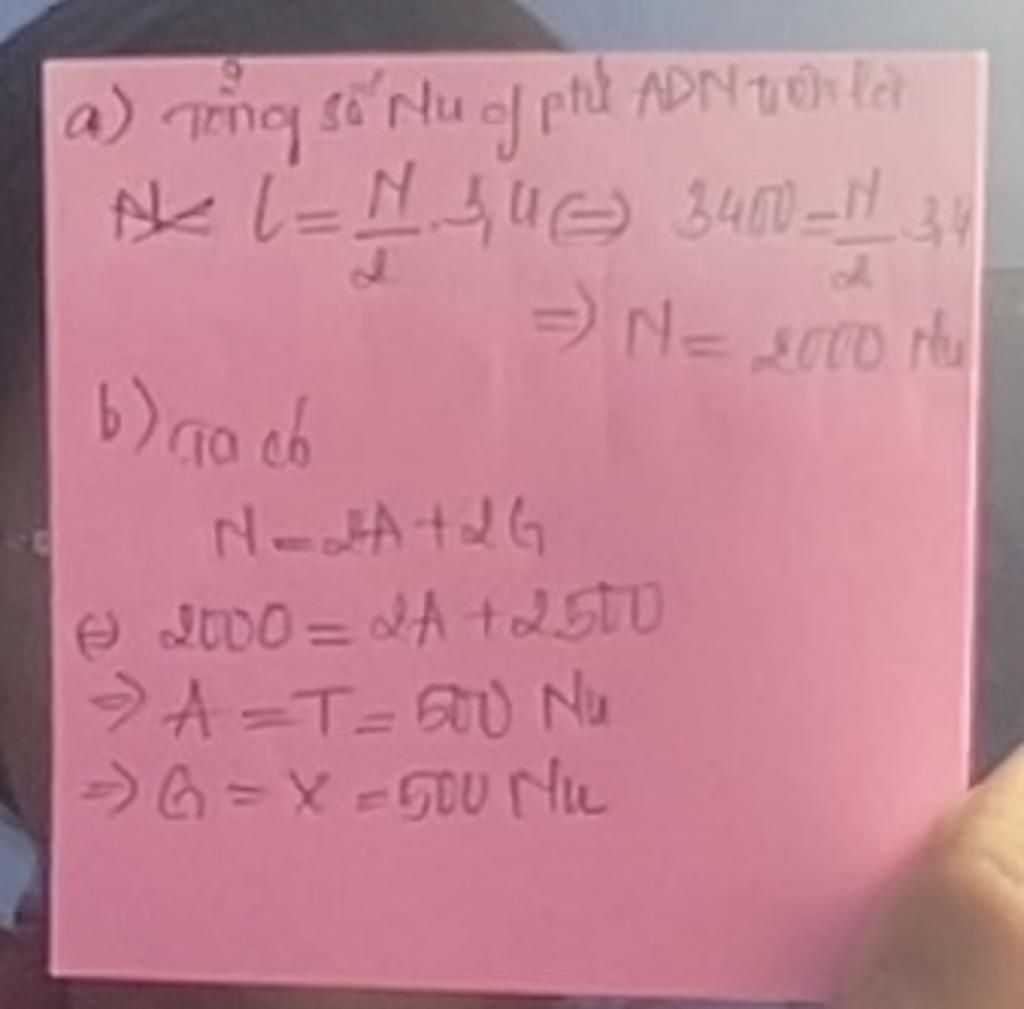 a) Tổng số Nu of ptử ADN trên là:
N= L = N/2 . 3,4 ⇔ 3400 = N/2 . 3,4
⇒ N = 2000 Nu
b) Ta có
N = 2A + 2G
⇔ 2000 = 2A + 2500
⇒ A = T = 500 Nu
⇒ G = X = 500 Nu